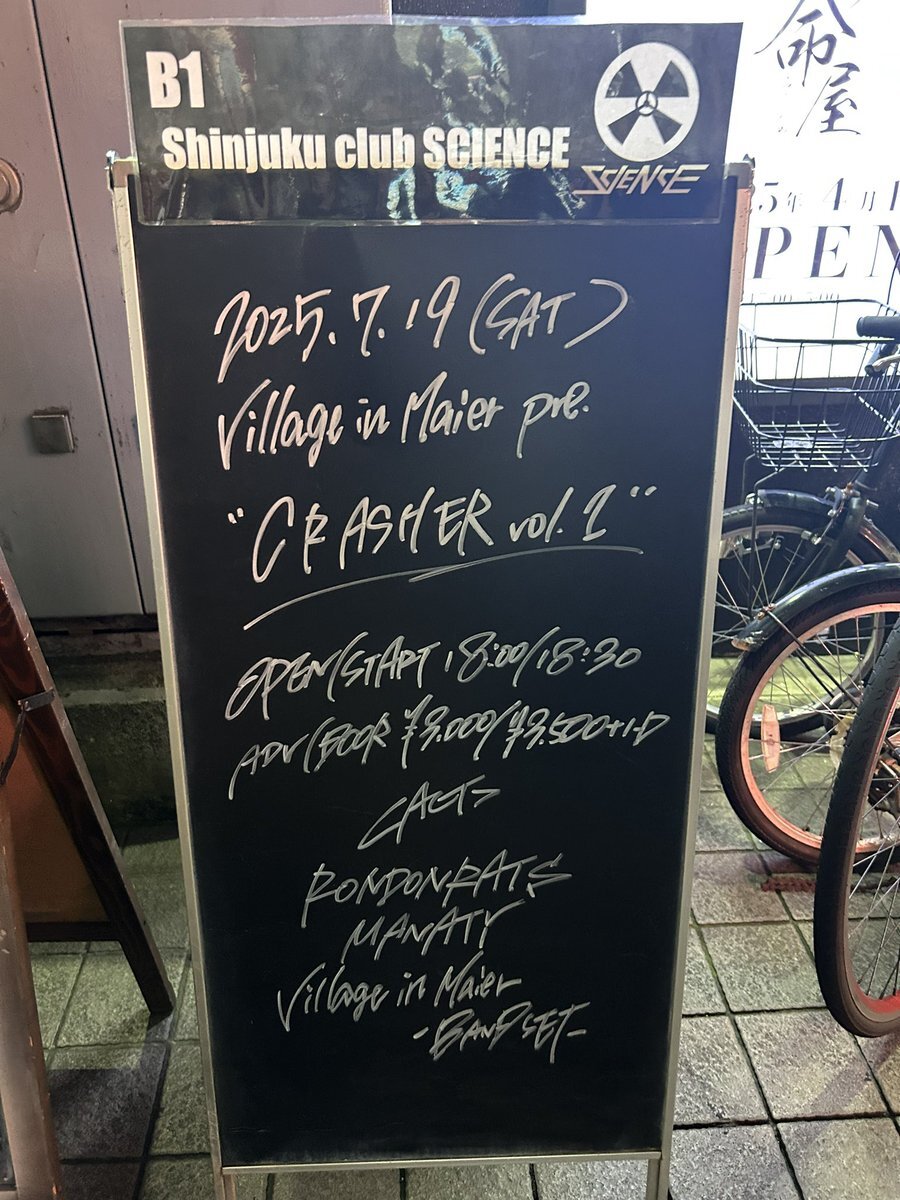 B1
Shinjuku club SCIENCE
SCIENCE
2025.7.19(SAT)
Village in Maier pre.
"CRASHER vol.1"
OPEN/START 18:00/18:30
ADV/DOOR ¥3.000/¥3.500+1D
<ACT>
RONDONRATS
MANATY
Village in Maier
-BAND SET-
命
屋
5年4月
PEN